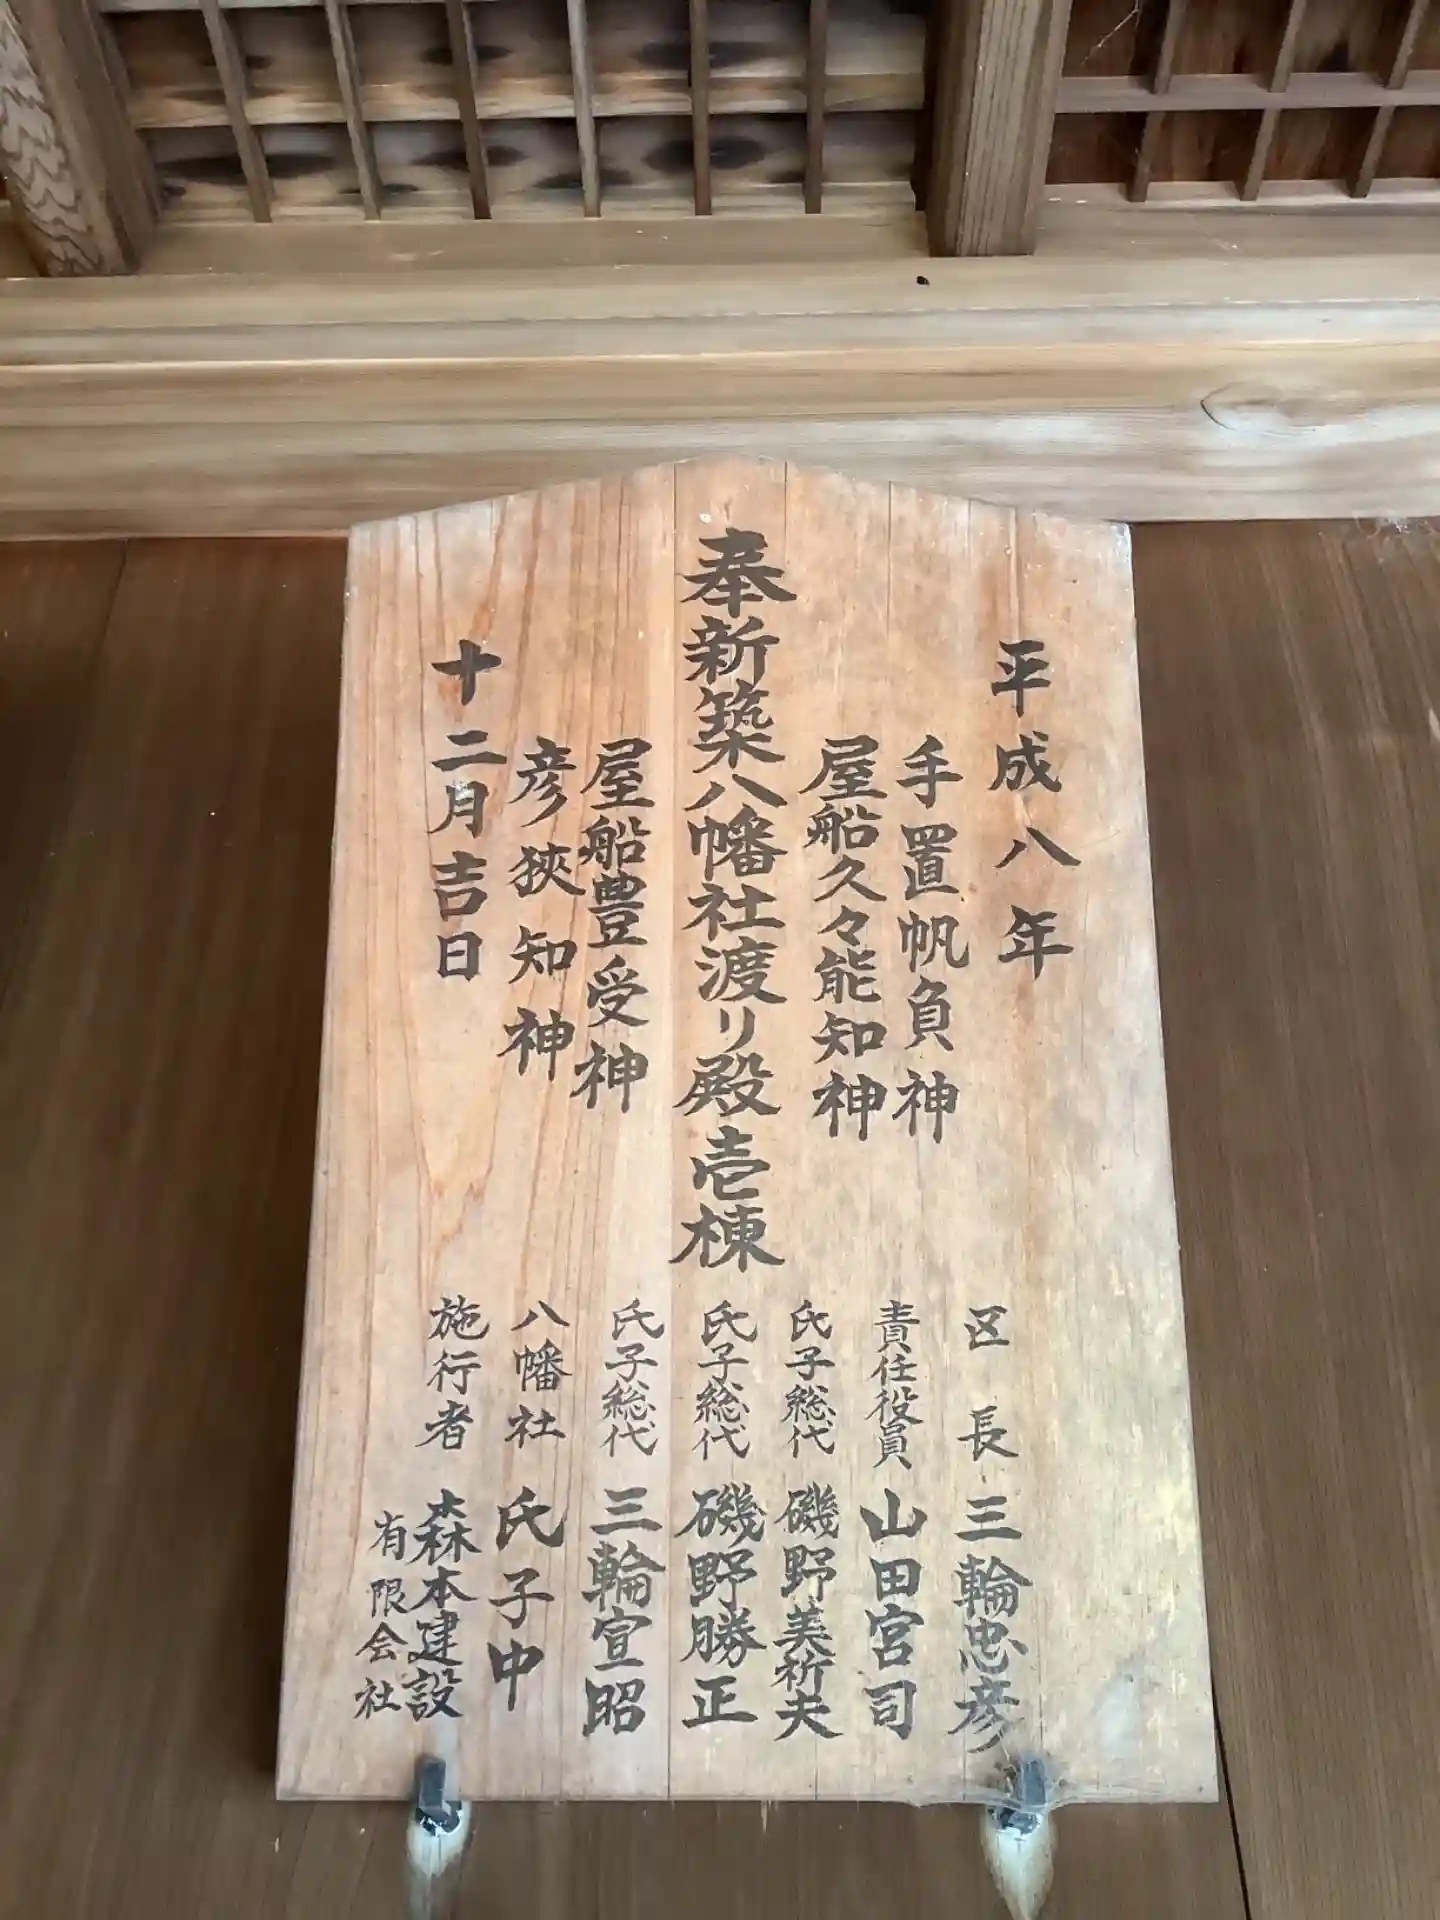 平成八年
手置帆負神
屋船久々能知神
奉新築八幡社渡リ殿壱棟
屋船豊受神
彦狹知神
十二月吉日
区長 三輪忠彦
責任役員 山田宮司
氏子総代 磯野美祈夫
氏子総代 磯野勝正
氏子総代 三輪宣昭
八幡社 氏子中
施行者 森本建設
有限会社